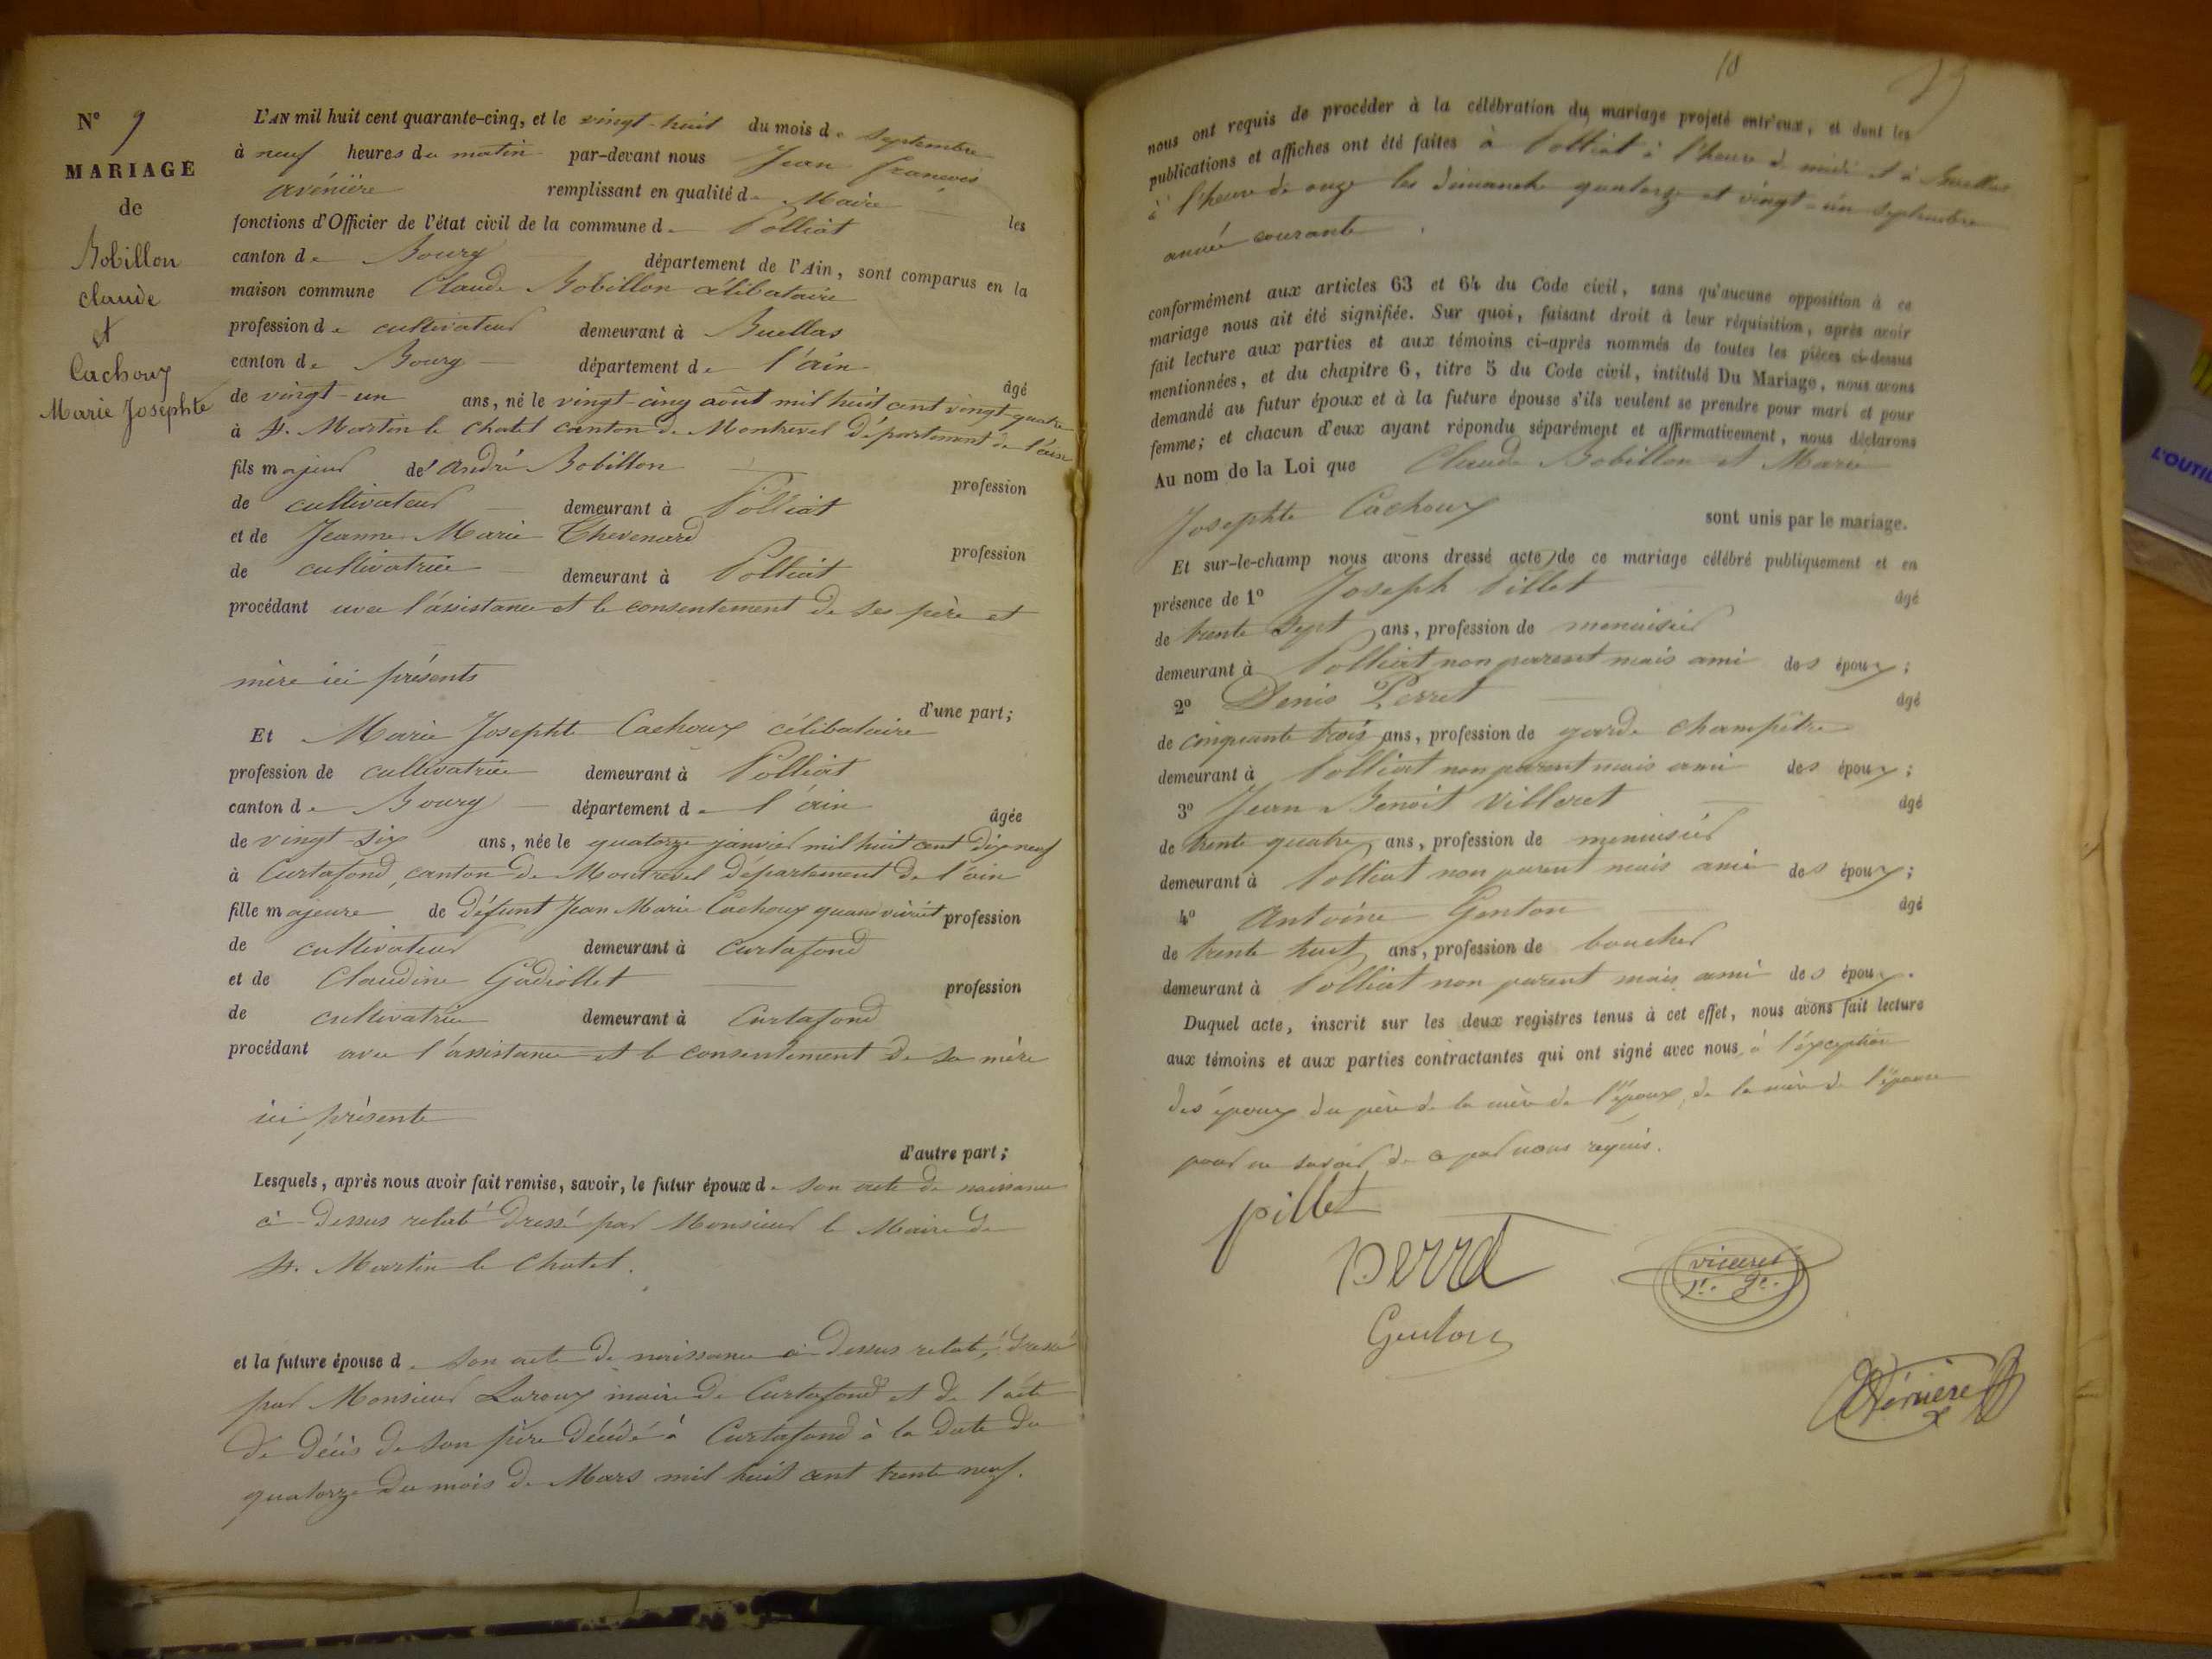 N° 9
MARIAGE
de
Bobillon
claude
et
Cachoux
Marie Josephte
L'AN mil huit cent quarante-cinq, et le vingt-huit du mois de septembre
à neuf heures du matin par-devant nous Jean françois
avénière remplissant en qualité de Maire les
fonctions d'Officier de l'état civil de la commune de Polliat
canton de Bourg département de l'Ain, sont comparus en la
maison commune Claude Bobillon célibataire
profession de cultivateur demeurant à Buellas
canton de Bourg département de l'ain âgé
de vingt-un ans, né le vingt-cinq août mil huit cent vingt-quatre
à St. Martin le Chatel canton de Montrevel département de l'ain
fils majeur de andré Bobillon profession
de cultivateur demeurant à Polliat
et de Jeanne Marie Thevenard profession
de cultivatrice demeurant à Polliat
procédant avec l'assistance et le consentement de ses père et
mère ici présents
d'une part;
Et Marie Josephte Cachoux célibataire
profession de cultivatrice demeurant à Polliat
canton de Bourg département de l'ain âgée
de vingt-six ans, née le quatorze janvier mil huit cent dix neuf
à Curtafond, canton de Montrevel département de l'ain
fille majeure de défunt Jean Marie Cachoux quand vivait profession
de cultivateur demeurant à Curtafond
et de Claudine Gadiollet profession
de cultivatrice demeurant à Curtafond
procédant avec l'assistance et le consentement de sa mère
ici présente
d'autre part;
Lesquels, après nous avoir fait remise, savoir, le futur époux de son acte de naissance
ci-dessus relaté dressé par Monsieur le Maire de
St. Martin le Chatel.
et la future épouse de son acte de naissance ci dessus relaté, dressé
par Monsieur Laroux maire de Curtafond et de l'acte
de décès de son père décédé à Curtafond à la date du
quatorze du mois de Mars mil huit cent trente neuf.
10
nous ont requis de procéder à la célébration du mariage projeté entr'eux, et dont les
publications et affiches ont été faites à Polliat à l'heure de midi et à Buellas
à l'heure de onze les dimanche quatorze et vingt-un septembre
année courante
conformément aux articles 63 et 64 du Code civil, sans qu'aucune opposition à ce
mariage nous ait été signifiée. Sur quoi, faisant droit à leur réquisition, après avoir
fait lecture aux parties et aux témoins ci-après nommés de toutes les pièces ci-dessus
mentionnées, et du chapitre 6, titre 5 du Code civil, intitulé Du Mariage, nous avons
demandé au futur époux et à la future épouse s'ils veulent se prendre pour mari et pour
femme; et chacun d'eux ayant répondu séparément et affirmativement, nous déclarons
Au nom de la Loi que Claude Bobillon et Marie
Josephte Cachoux sont unis par le mariage.
Et sur-le-champ nous avons dressé acte de ce mariage célébré publiquement et en
présence de 1° Joseph Pillet âgé
de trente sept ans, profession de menuisier
demeurant à Polliat non parent mais ami des époux;
2° Denis Perret âgé
de cinquante trois ans, profession de garde champêtre
demeurant à Polliat non parent mais ami des époux;
3° Jean Benoit Villeret âgé
de trente quatre ans, profession de menuisier
demeurant à Polliat non parent mais ami des époux;
4° Antoine Genton âgé
de trente huit ans, profession de boucher
demeurant à Polliat non parent mais ami des époux.
Duquel acte, inscrit sur les deux registres tenus à cet effet, nous avons fait lecture
aux témoins et aux parties contractantes qui ont signé avec nous, à l'éxception
des époux du père de la mère de l'époux, de la mère de l'épouse
pour ne savoir de ce par nous requis.
pillet
perret
villeret
Genton
Avéniere
L'OUTIL